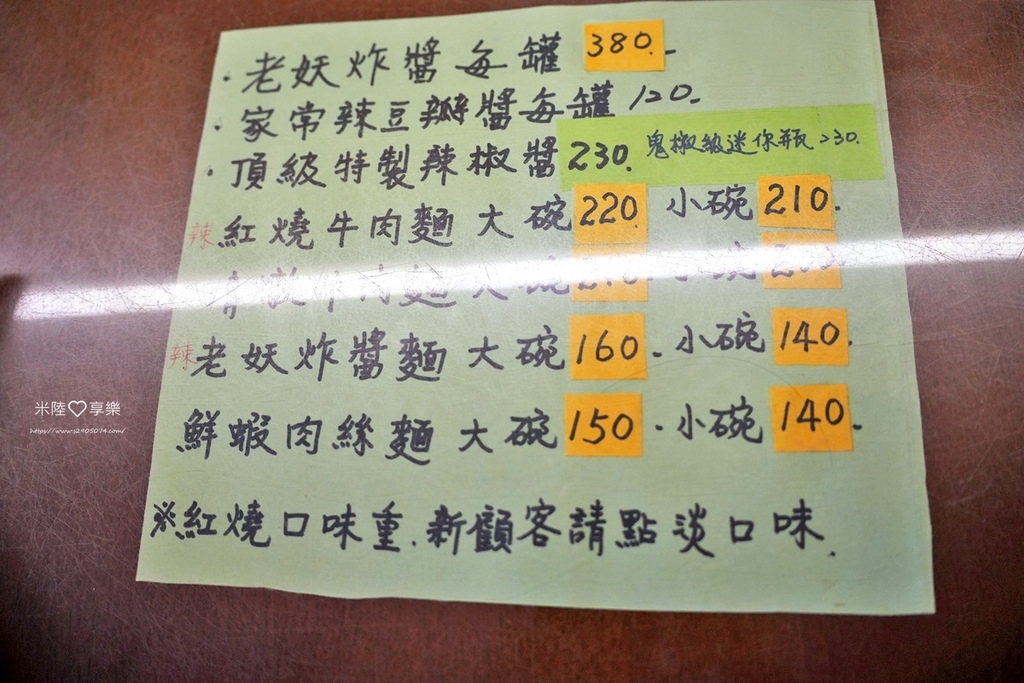 ·老妖炸醬每罐380.
·家常辣豆瓣醬每罐120.
·頂級特製辣椒醬230. 鬼椒級迷你瓶230.
辣紅燒牛肉麵大碗220. 小碗210.
牛肉麵大碗 小碗
辣老妖炸醬麵大碗160. 小碗140.
鮮蝦肉絲麵大碗150. 小碗140.
※紅燒口味重.新顧客請點淡口味.
米陸♡享樂
https://www.s2905074.com/